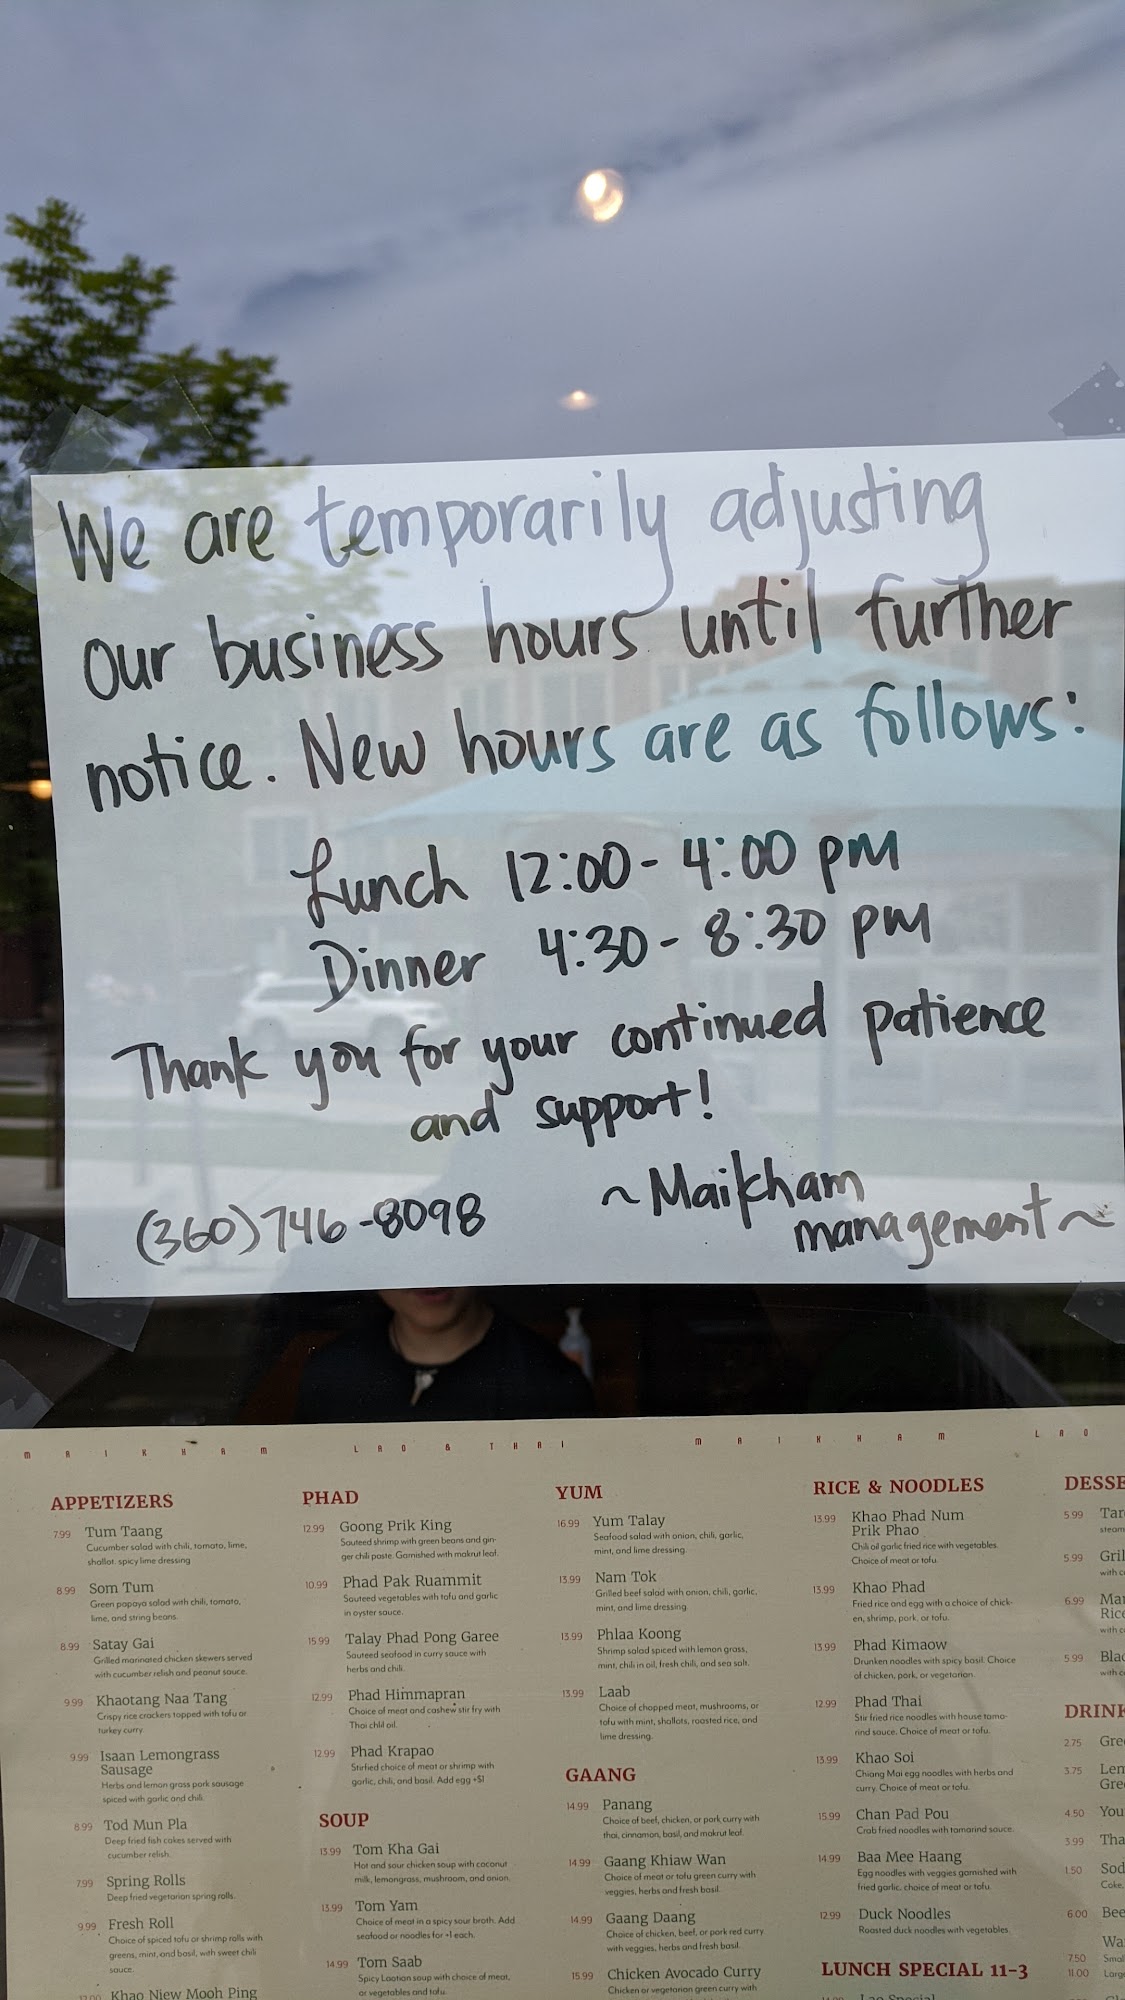 We are temporarily adjusting
our business hours until further
notice. New hours are as follows:
Lunch 12:00 - 4:00 pm
Dinner 4:30 - 8:30 pm
Thank you for your continued patience
and support!
(360) 746-8098
~Maikham
management~
MAIKHAM LAO & THAI MAIKHAM LAO
APPETIZERS
7.99 Tum Taang
Cucumber salad with chili, tomato, lime,
shallot, spicy lime dressing
8.99 Som Tum
Green papaya salad with chili, tomato,
lime, and string beans.
8.99 Satay Gai
Grilled marinated chicken skewers served
with cucumber relish and peanut sauce.
9.99 Khaotang Naa Tang
Crispy rice crackers topped with tofu or
turkey curry
9.99 Isaan Lemongrass
Sausage
Herbs and lemon grass pork sausage
spiced with garlic and chili.
8.99 Tod Mun Pla
Deep fried fish cakes served with
cucumber relish.
7.99 Spring Rolls
Deep fried vegetarian spring rolls.
9.99 Fresh Roll
Choice of spiced tofu or shrimp rolls with
greens, mint, and basil, with sweet chili
sauce.
Khao Niew Mooh Ping
PHAD
12.99 Goong Prik King
Sauteed shrimp with green beans and gin-
ger chili paste. Garnished with makrut leaf.
10.99 Phad Pak Ruammit
Sauteed vegetables with tofu and garlic
in oyster sauce.
15.99 Talay Phad Pong Garee
Sauteed seafood in curry sauce with
herbs and chili.
12.99 Phad Himmapran
Choice of meat and cashew stir fry with
Thai chili oil.
12.99 Phad Krapao
Stirfried choice of meat or shrimp with
garlic, chili, and basil. Add egg +$1
SOUP
13.99 Tom Kha Gai
Hot and sour chicken soup with coconut
milk, lemongrass, mushroom, and onion.
13.99 Tom Yam
Choice of meat in a spicy sour broth. Add
seafood or noodles for +1 each.
14.99 Tom Saab
Spicy Laotian soup with choice of meat,
or vegetables and tofu.
YUM
16.99 Yum Talay
Seafood salad with onion, chili, garlic,
mint, and lime dressing.
13.99 Nam Tok
Grilled beef salad with onion, chili, garlic,
mint, and lime dressing
13.99 Phlaa Koong
Shrimp salad spiced with lemon grass,
mint, chili in oil, fresh chili, and sea salt.
13.99 Laab
Choice of chopped meat, mushrooms, or
tofu with mint, shallots, roasted rice, and
lime dressing.
GAANG
14.99 Panang
Choice of beef, chicken, or pork curry with
thai, cinnamon, basil, and makrut leaf.
14.99 Gaang Khiaw Wan
Choice of meat or tofu green curry with
veggies, herbs and fresh basil.
14.99 Gaang Daang
Choice of chicken, beef, or pork red curry
with veggies, herbs and fresh basil.
15.99 Chicken Avocado Curry
Chicken or vegetarian green curry with
RICE & NOODLES
13.99 Khao Phad Num
Prik Phao
Chili oil garlic fried rice with vegetables.
Choice of meat or tofu.
13.99 Khao Phad
Fried rice and egg with a choice of chick-
en, shrimp, pork, or tofu.
13.99 Phad Kimaow
Drunken noodles with spicy basil. Choice
of chicken, pork, or vegetarian.
12.99 Phad Thai
Stir fried rice noodles with house tama-
rind sauce. Choice of meat or tofu.
13.99 Khao Soi
Chiang Mai egg noodles with herbs and
curry. Choice of meat or tofu.
15.99 Chan Pad Pou
Crab fried noodles with tamarind sauce.
14.99 Baa Mee Haang
Egg noodles with veggies garnished with
fried garlic, choice of meat or tofu.
12.99 Duck Noodles
Roasted duck noodles with vegetables.
LUNCH SPECIAL 11-3
Lao Special
DESSE
5.99 Tar
steam
5.99 Gril
with c
6.99 Ma
Rice
with c
5.99 Blac
with c
DRINK
2.75 Gre
3.75 Lem
Gre
4.50 You
3.99 Tha
1.50 Sod
Coke,
6.00 Bee
Wa
7.50 Smal
11.00 Larg